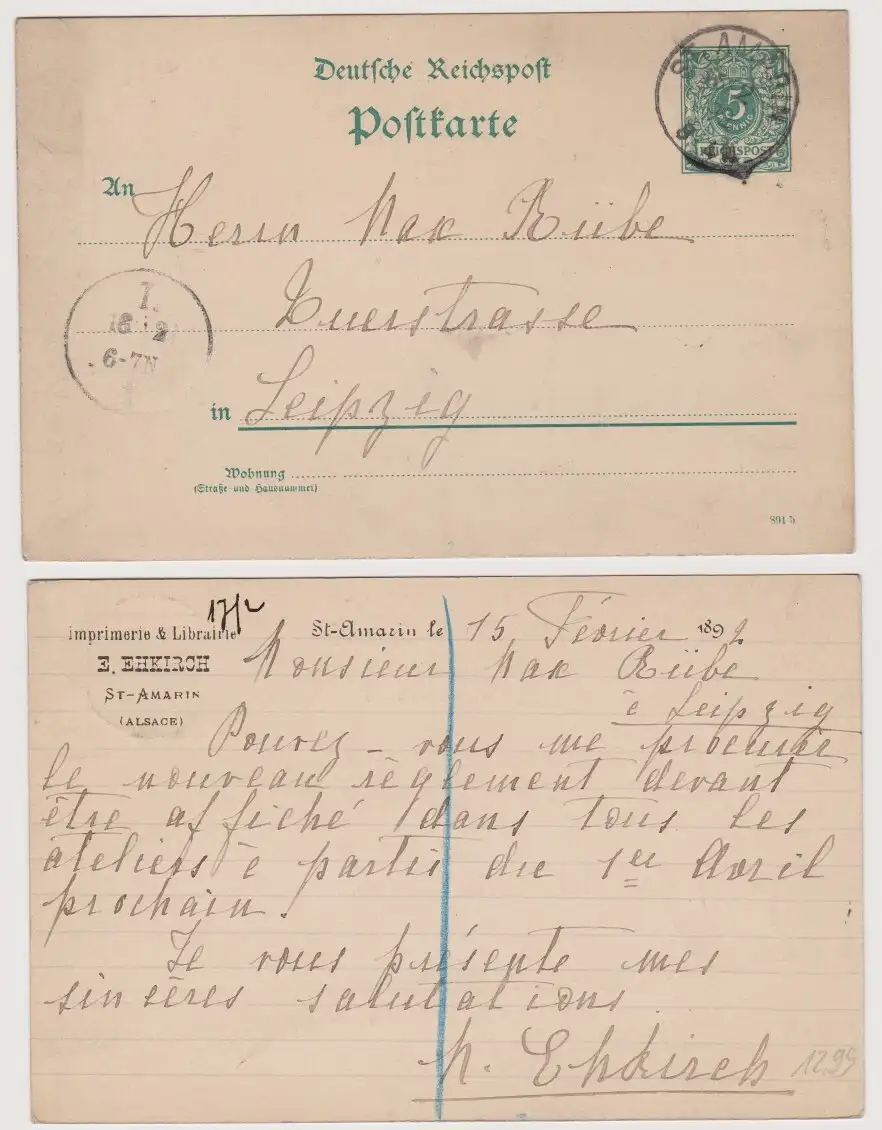 Deutsche Reichspost
Postkarte
ST. AMARIN
5
PFENNIG
REICHSPOST
An Herrn Max Rübe
Querstrasse
in Leipzig
Wohnung
(Straße und Hausnummer)
1.
16 2
6-7N
891 b
17/2
Imprimerie & Librairie
E. EHKIRCH
ST-AMARIN
(ALSACE)
St-Amarin le 15 Février 1892
Monsieur Max Rübe
à Leipzig
Pouvez-vous me procurer
le nouveau règlement devant
être affiché dans tous les
ateliers à partir du 1er Avril
prochain.
Je vous présente mes
sincères salutations
Ehkirch
1299